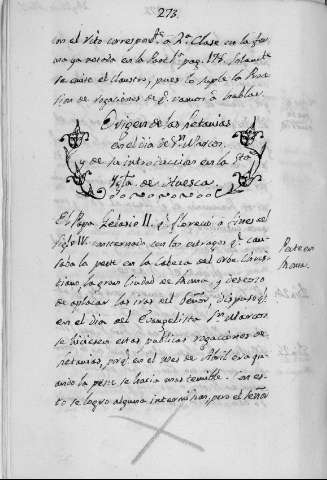 273.
con el rito correspond.te a 2.a Clase en la for
ma ya notada en la Parte 1.a pag. 175. Solamte
se omite el claustro, pues lo suple la Pro
sion de rogaciones de q.e vamos a hablar.
Origen de las Letanias
en el dia de Sn. Marcos.
y de su introduccion en la Sta
Igla. de Huesca
El Papa Pelasio II. q.e florecio a fines del
siglo VI. consternado con los estragos q.e cau
saba la peste en la Cabeza del orbe Christi
tiano, la gran Ciudad de Roma, y deseoso
de aplacar las iras del Señor, dispuso q.e
en el dia del Evangelista Sn. Marcos
se hiciesen estas publicas rogaciones de
Letanias, porq.e en el mes de Abril era qu
ando la peste se hacia mas temible. Con es
to se logro alguna intermision, pero el Señor
Peste en
Roma.